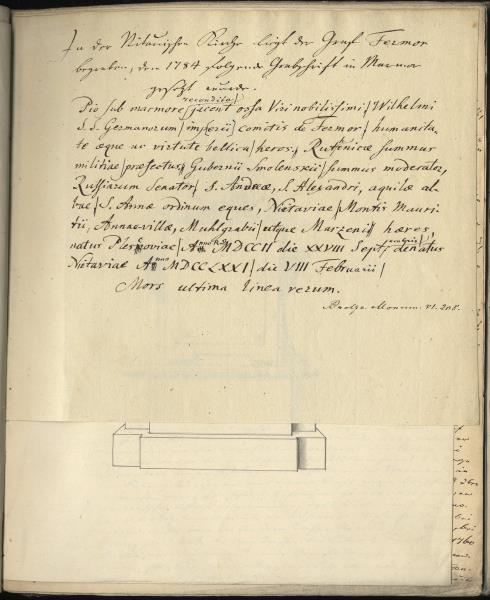 In der Nitauischen Kirche liegt der Graf Fermor
begraben, dem 1784 folgende Grabschrift in Marmor
gesetzt wurde.
recondita
Pio sub marmore jacent ossa Viri nobilissimi / Wilhelmi
S. S. Germanorum imperii / comitis de Fermor / humanita-
te aeque ac virtute bellica / heros, Ruthenicae summus
militiae / praefectus / Gubernii Smolenscii / summus moderator,
Russiarum Senator / S. Andreae, S. Alexandri, aquilae al-
bae / S. Annae ordinum eques, Nietaviae / Montis Mauri-
tii, Annaevillae, Muhlgrabii / atque Marzenii / haeres,
natus Plescoviae / A MDCCII die XXVIII Sept / denatus
Nietaviae Anno MDCCLXXI / die VIII Februarii /
Mors ultima linea rerum.
Brotze Monum. VI. 208.